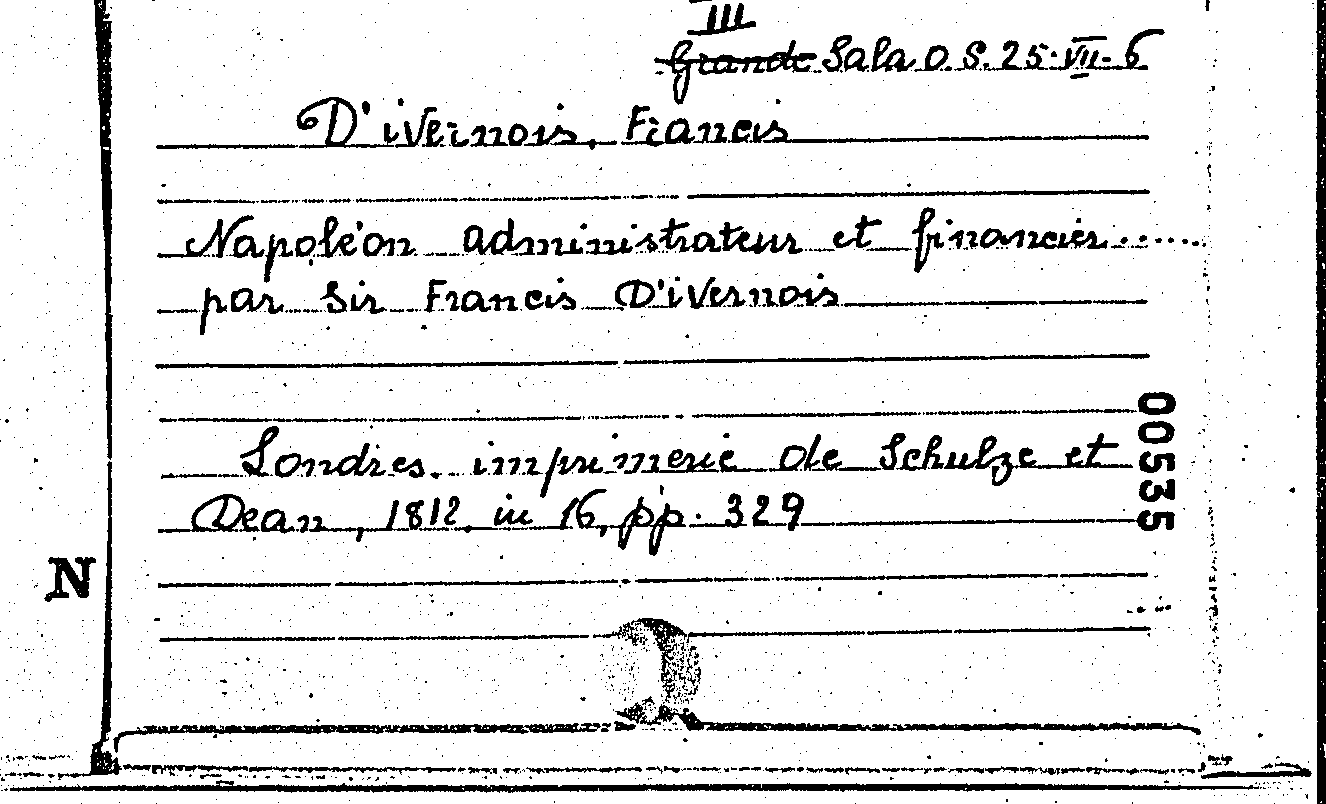 III
Grande Sala O. S. 25. VII. 6
D'ivernois, Francis
Napoléon administrateur et financier......
par Sir Francis D'ivernois
Londres. imprimerie de Schulze et
Dean, 1812. in 16, pp. 329
00535
N